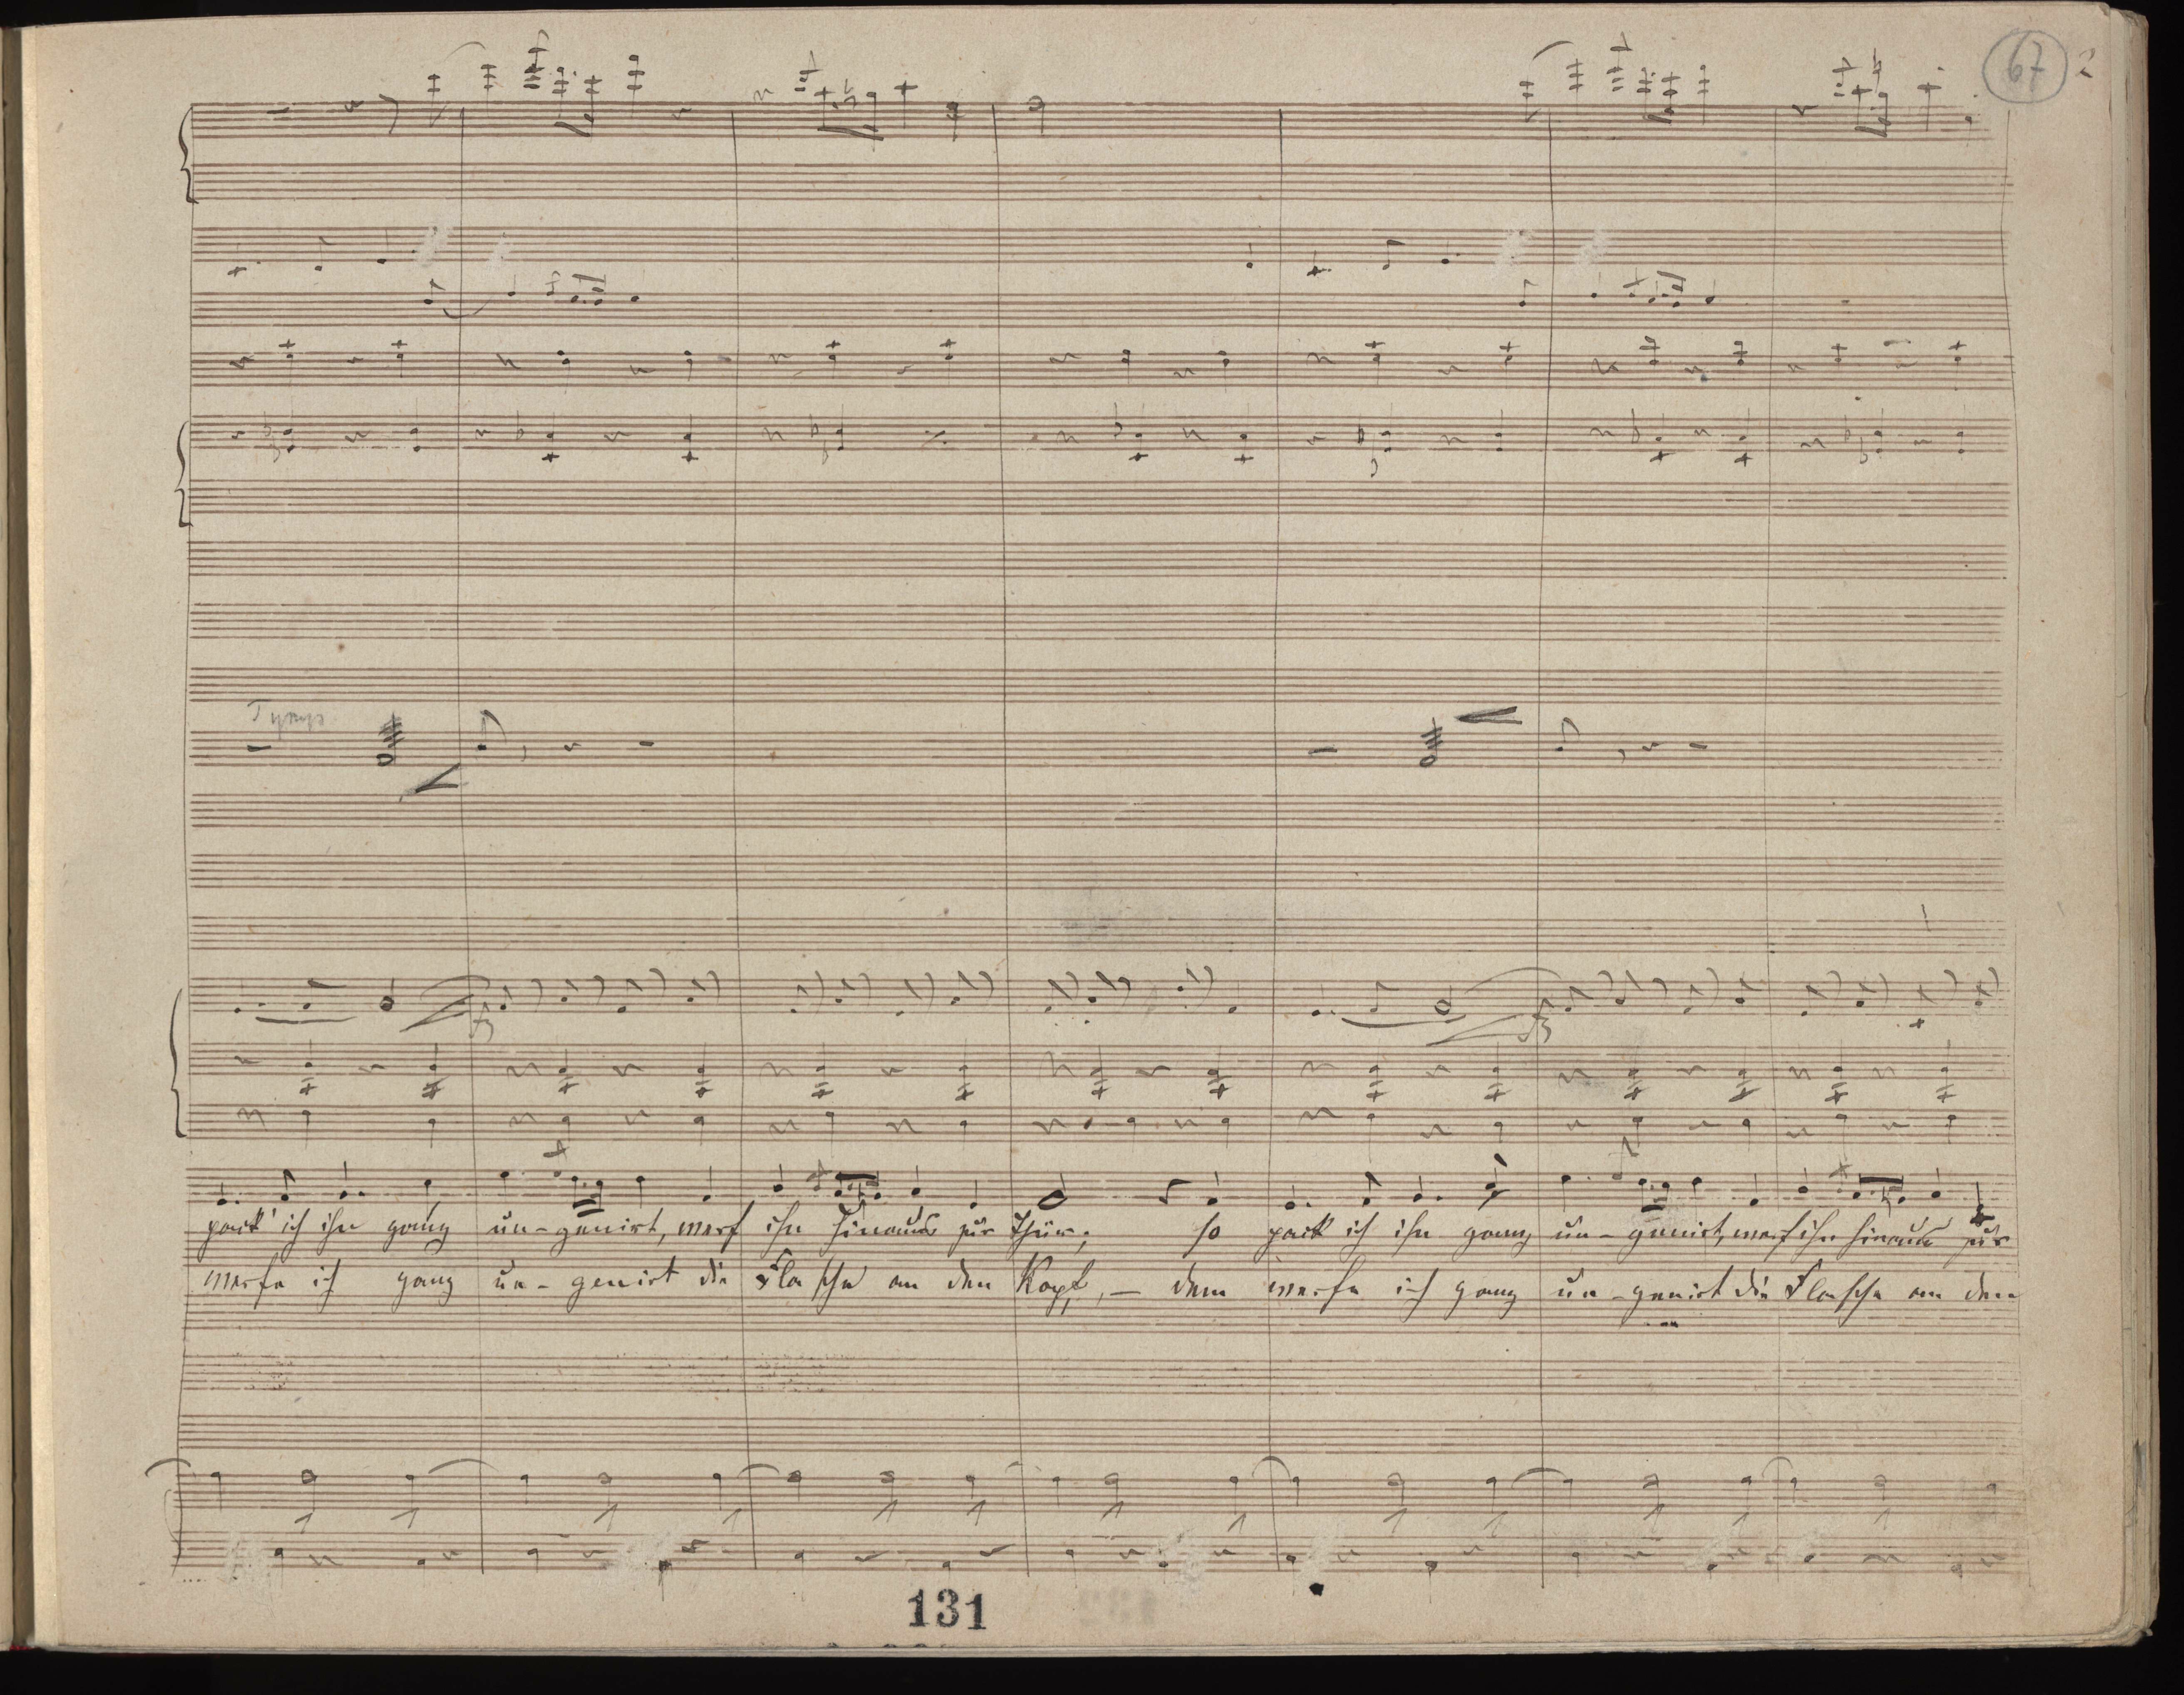 67 2
Tymp
pack' ich ihn ganz un-genirt, werf ihn hinaus zur Thür; so pack ich ihn ganz un-genirt, werf ihn hinaus zur
werfe ich ganz un-genirt die Flasche an den Kopf, — dem werfe ich ganz un-genirt die Flasche an den
131